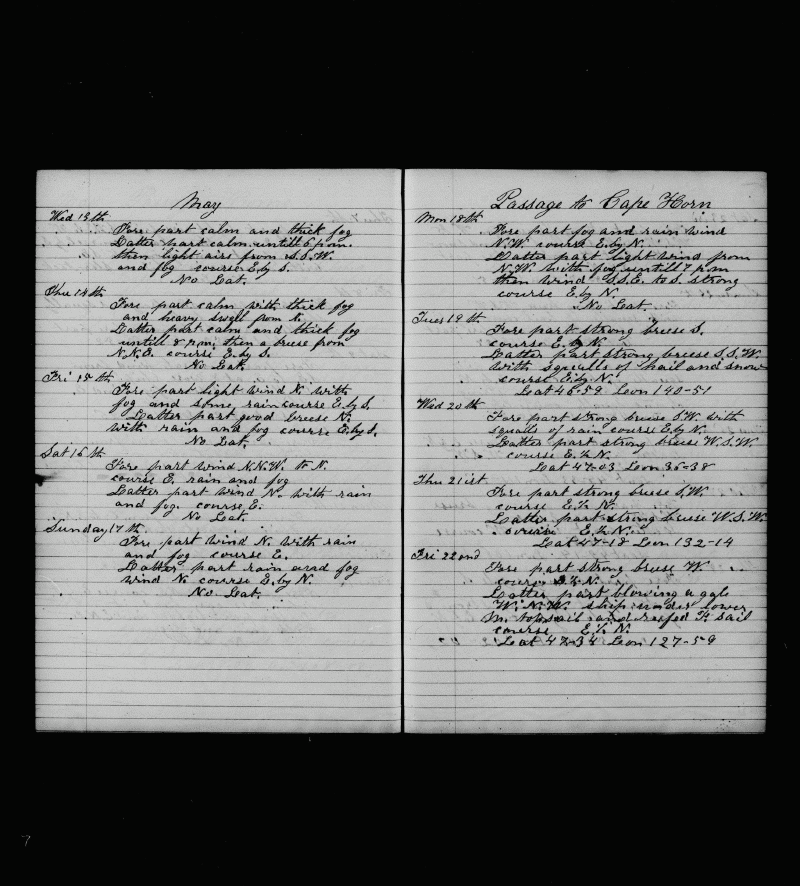 May
Wed 13th
Fore part calm and thick fog
Latter part calm untill 6 p.m.
then light airs from S.S.W.
and fog course E. by S.
No Lat.
Thu 14th
Fore part calm with thick fog
and heavy swell from N.
Latter part calm and thick fog
untill 8 p.m. then a breese from
N.N.E. course E. by S.
No Lat.
Fri 15th
Fore part light wind N. with
fog and some rain course E. by S.
Latter part good breese N.
with rain and fog course E. by S.
No Lat.
Sat 16th
Fore part wind N.N.W. to N.
course E. rain and fog
Latter part wind N. with rain
and fog. course E.
No Lat.
Sunday 17th
Fore part wind N. with rain
and fog course E.
Latter part rain and fog
wind N course E. by N.
No Lat.
Passage to Cape Horn
Mon 18th
Fore part fog and rain wind
N.W. course E. by N.
Latter part light wind from
N.W. with fog untill 7 p.m
then wind S.S.E. to S. strong
course E. by N.
No Lat.
Tues 19th
Fore part strong breese S.
course E. by N.
Latter part strong breese S.S.W.
with squalls of hail and snow
course E. by N.
Lat 46-59 Lon 140-51
Wed 20th
Fore part strong breese S.W. with
squals of rain course E. by N.
Latter part strong breese W.S.W
course E. ½ N.
Lat 47-03 Lon 36-38
Thu 21st
Fore part strong breese S.W.
course E ½ N.
Latter part strong breese W.S.W.
course E ½ N.
Lat 47-18 Lon 132-14
Fri 22nd
Fore part strong breese W.
course E ½ N.
Latter part blowing a gale
W.N.W. ship under lower
M. topsail and reefed F. sail
course E ½ N.
Lat 47-34 Lon 127-59
7